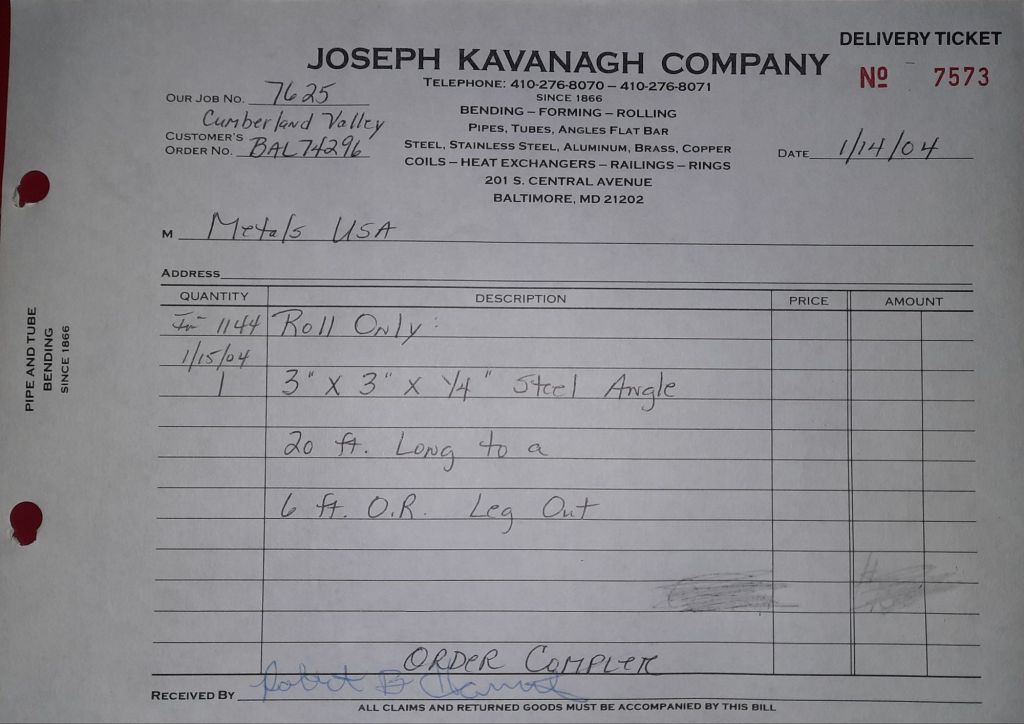 DELIVERY TICKET
JOSEPH KAVANAGH COMPANY
Nº 7573
TELEPHONE: 410-276-8070 – 410-276-8071
SINCE 1866
OUR JOB NO. 7625
BENDING – FORMING – ROLLING
Cumberland Valley
PIPES, TUBES, ANGLES FLAT BAR
CUSTOMER'S
ORDER NO. BAL74296
STEEL, STAINLESS STEEL, ALUMINUM, BRASS, COPPER
DATE 1/14/04
COILS – HEAT EXCHANGERS – RAILINGS – RINGS
201 S. CENTRAL AVENUE
BALTIMORE, MD 21202
M Metals USA
ADDRESS
QUANTITY DESCRIPTION PRICE AMOUNT
1144 Roll Only:
1/15/04
1 3" X 3" X 1/4" Steel Angle
20 ft. Long to a
6 ft. O.R. Leg Out
ORDER COMPLETE
RECEIVED BY Robert B
ALL CLAIMS AND RETURNED GOODS MUST BE ACCOMPANIED BY THIS BILL
PIPE AND TUBE
BENDING
SINCE 1866